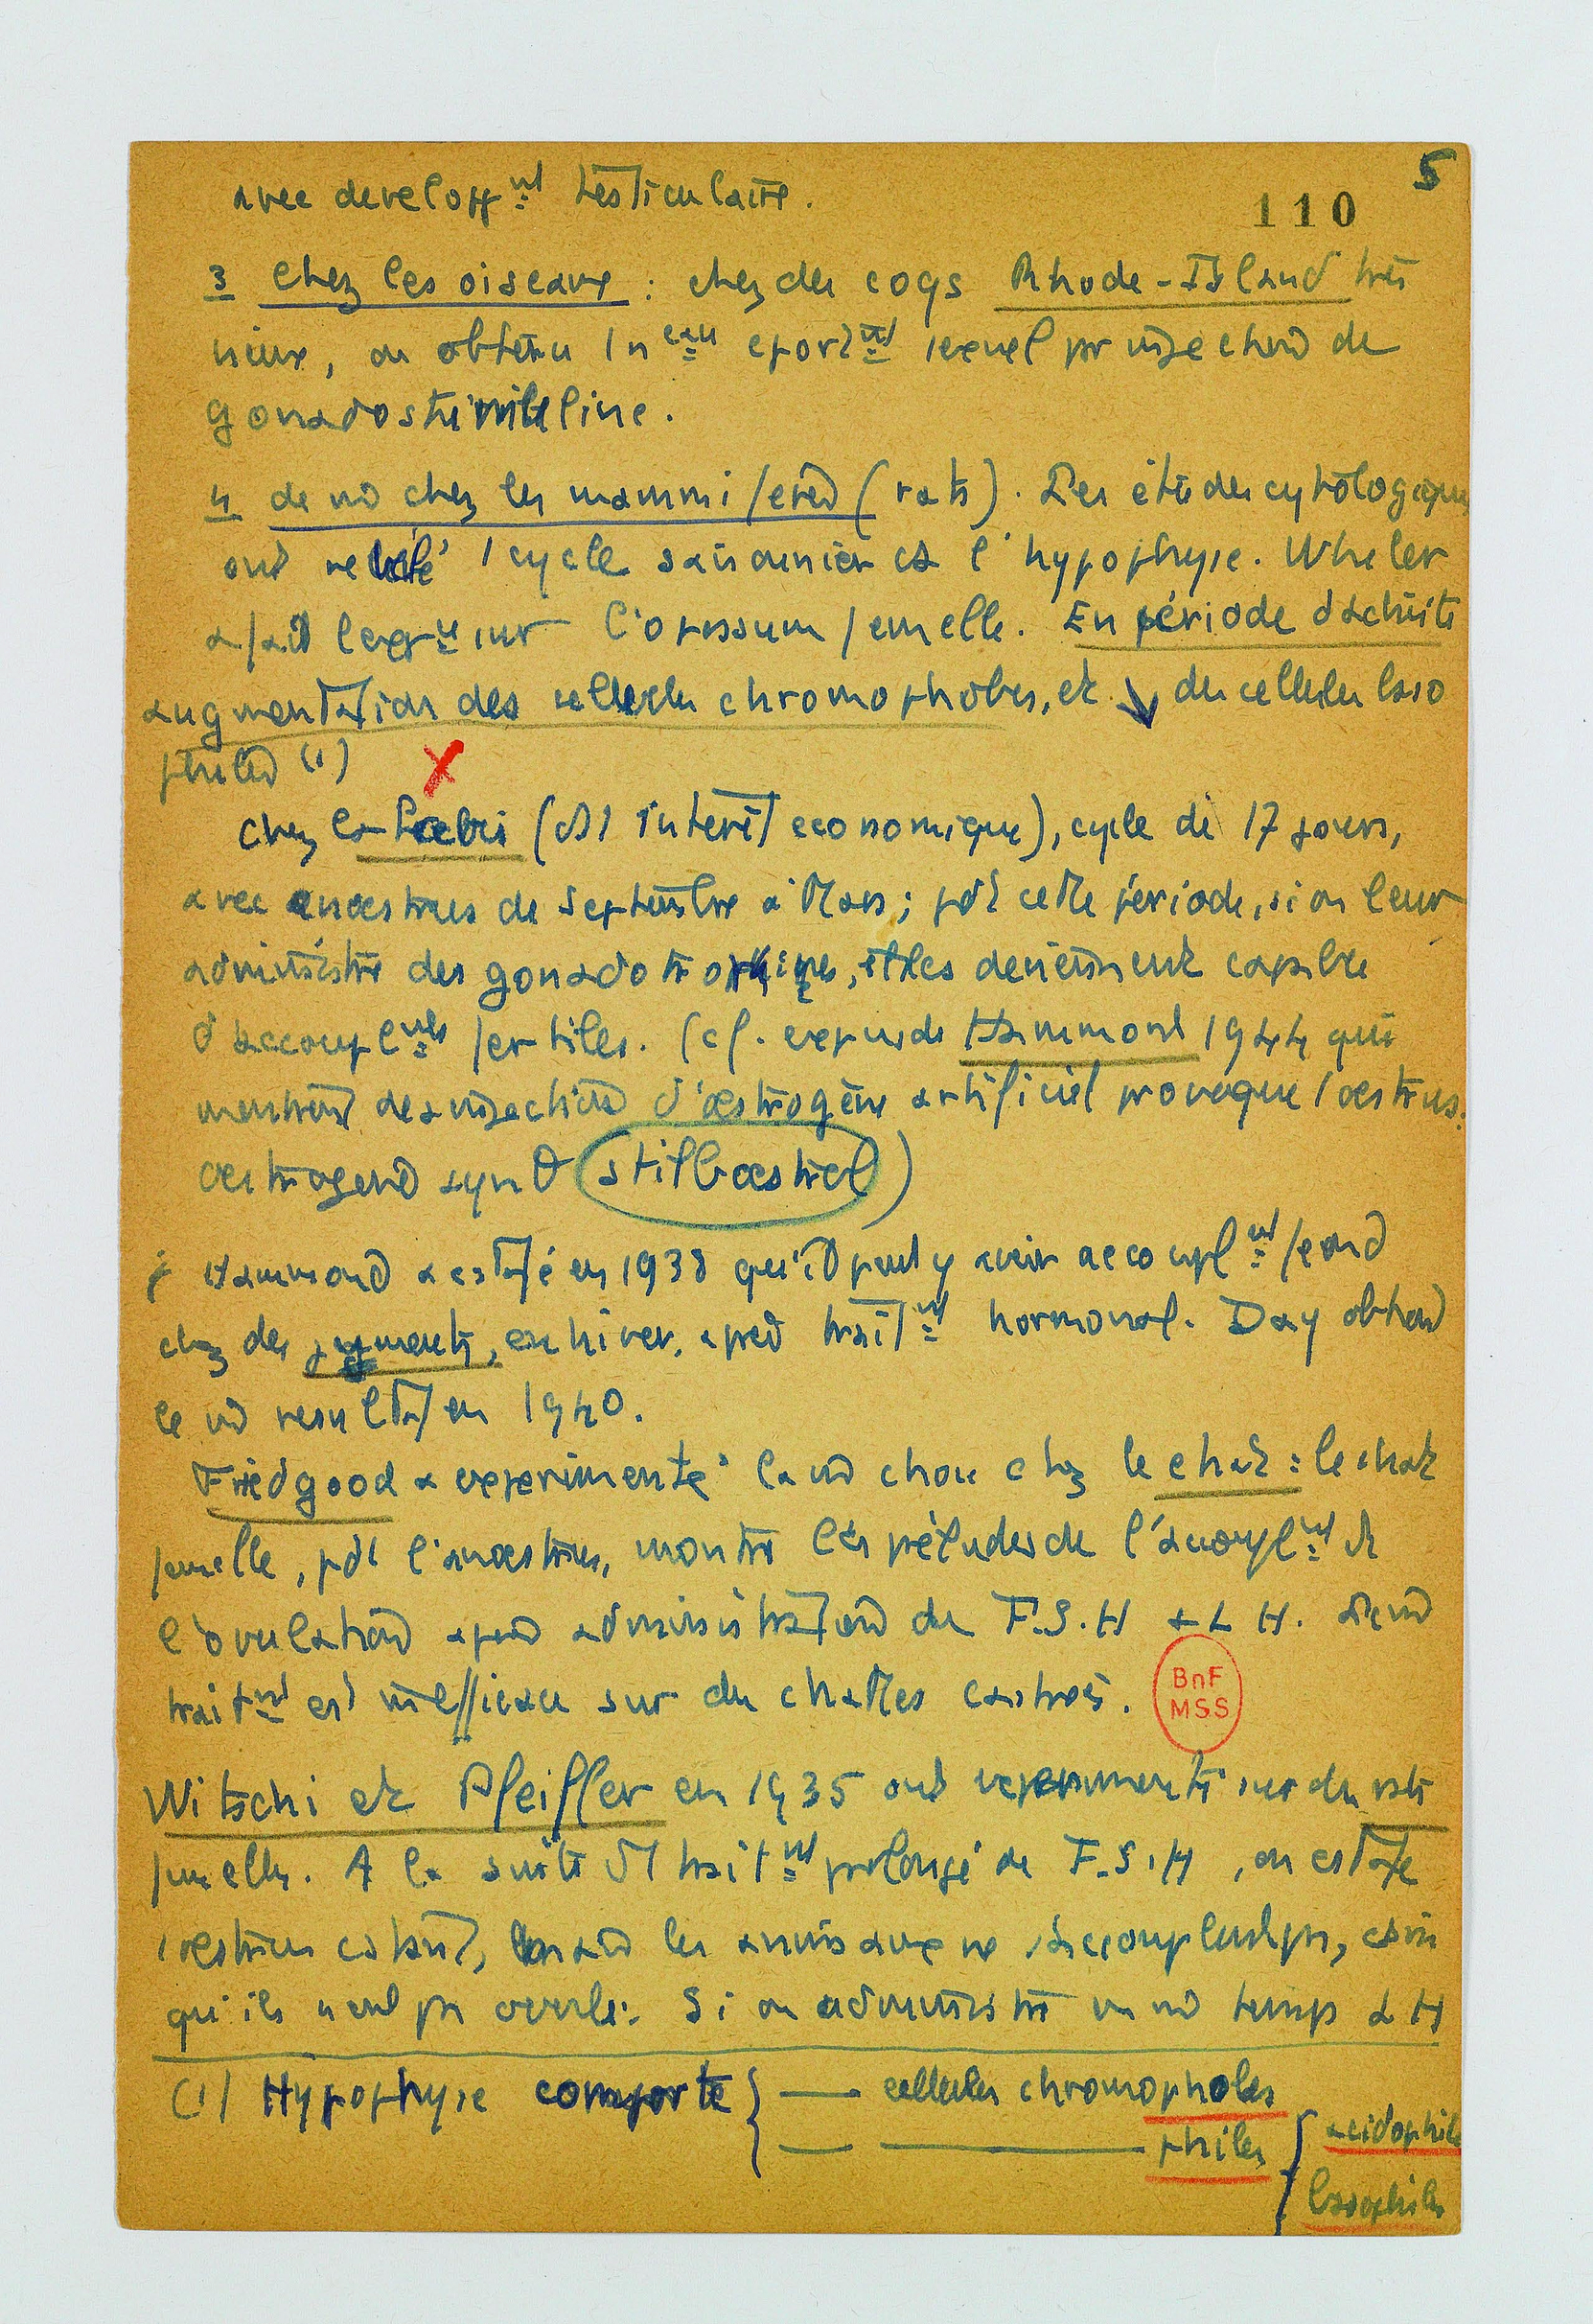 5
110
avec developpnt testiculaire.
3 Chez les oiseaux : chez des coqs Rhode-Island très
vieux, on obtenu 1 neau eportmt sexuel par injection de
gonadostimuline.
4 de m̂ chez les mammifères (rats). Des études cytologiques
ont révélé 1 cycle saisonnier ds l'hypophyse. Wheeler
a fait sur l'opossum femelle. En période d'activité
augmentation des cellules chromophobes, et ↘ des cellules baso
philes (1)
X
Chez la brebis (ct intérêt economique), cycle de 17 jours,
avec anoestrus de Septembre à Mars ; pdt cette période, si on leur
administre des gonadotropines, elles deviennent capables
d'accouplnts fertiles. (cf. exp de Hammond 1944 qui
montrent des injections d'œstrogène artificiel provoque l'œstrus.
œstrogène synθ stilbœstrol)
Hammond a cstaté en 1938 qu'il peut y avoir accouplnt fécond
chez des juments, en hiver, après traitnt hormonal. Day obtient
le m̂ resultat en 1940.
Friedgood a experimenté la m̂ chose chez le chat : le chat
femelle, pdt l'anoestrus, montre les préludes de l'accouplnt et
l'ovulation après administration de F.S.H & L H.
traitnt est inefficace sur des chattes castrées.
BnF
MSS
Witschi et Pfeiffer en 1935 ont experimenté sur des rats
femelles. A la suite d'1 traitnt prolongé de F.S.H, on cstate
1 œstrus cstant, les animaux ne s'accouplent pas,
qu'ils n'ont pas ovulé. Si on administre en m̂ temps L H
(1) Hypophyse comporte { — cellules chromophobes
— — philes { acidophiles
basophiles